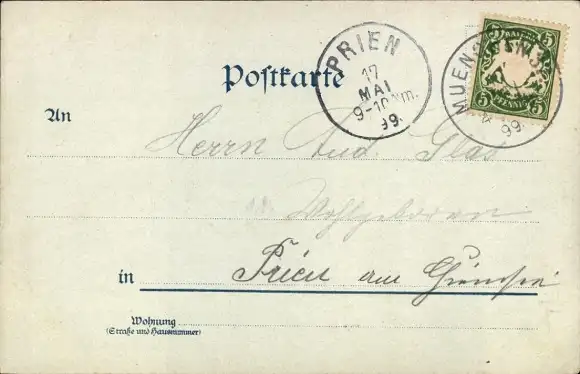 Postkarte
PRIEN
17
MAI
9-10 Nm.
99.
MUEN
99.
BAYERN
5 5
PFENNIG
An
Herrn Aud. Glas
Wohlgeboren
in Prien am Chiemsee
Wohnung
(Straße und Hausnummer)